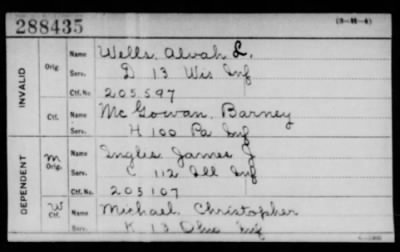 288435 (3-114)
INVALID
Orig. Name Wells, Alvah L.
Serv. D 13 Wis Inf
Ctf. No. 205.597
Ctf. Name McGowan, Barney
Serv. H 100 Pa Inf
DEPENDENT
M Orig. Name Inglis James J
Serv. C 112 Ill Inf
Ctf. No. 205107
W Ctf. Name Michael, Christopher
Serv. K 13 Ohio Inf